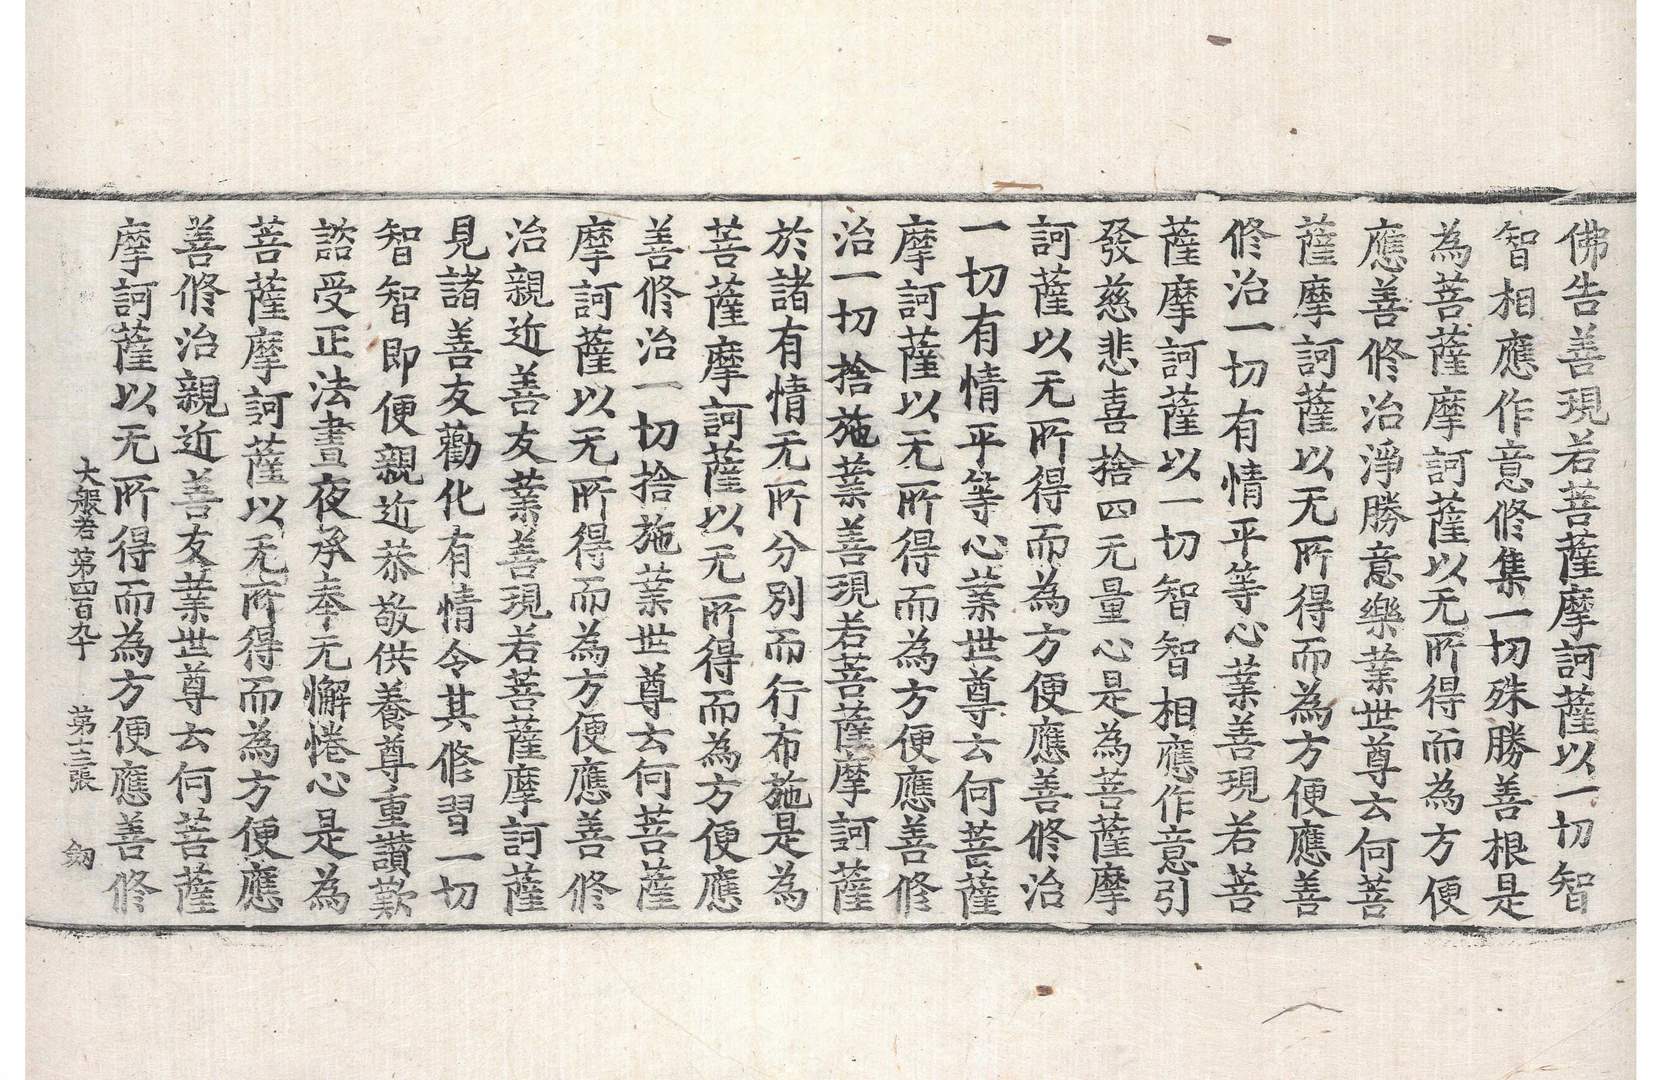 佛告善現若菩薩摩訶薩以一切智
智相應作意修集一切殊勝善根是
為菩薩摩訶薩以无所得而為方便
應善修治淨勝意樂業世尊云何菩
薩摩訶薩以无所得而為方便應善
修治一切有情平等心業善現若菩
薩摩訶薩以一切智智相應作意引
發慈悲喜捨四无量心是為菩薩摩
訶薩以无所得而為方便應善修治
一切有情平等心業世尊云何菩薩
摩訶薩以无所得而為方便應善修
治一切捨施業善現若菩薩摩訶薩
於諸有情无所分別而行布施是為
菩薩摩訶薩以无所得而為方便應
善修治一切捨施業世尊云何菩薩
摩訶薩以无所得而為方便應善修
治親近善友業善現若菩薩摩訶薩
見諸善友勸化有情令其修習一切
智智即便親近恭敬供養尊重讚歎
諮受正法晝夜承奉无懈惓心是為
菩薩摩訶薩以无所得而為方便應
善修治親近善友業世尊云何菩薩
摩訶薩以无所得而為方便應善修
大般若第四百九十 第十三張 劒